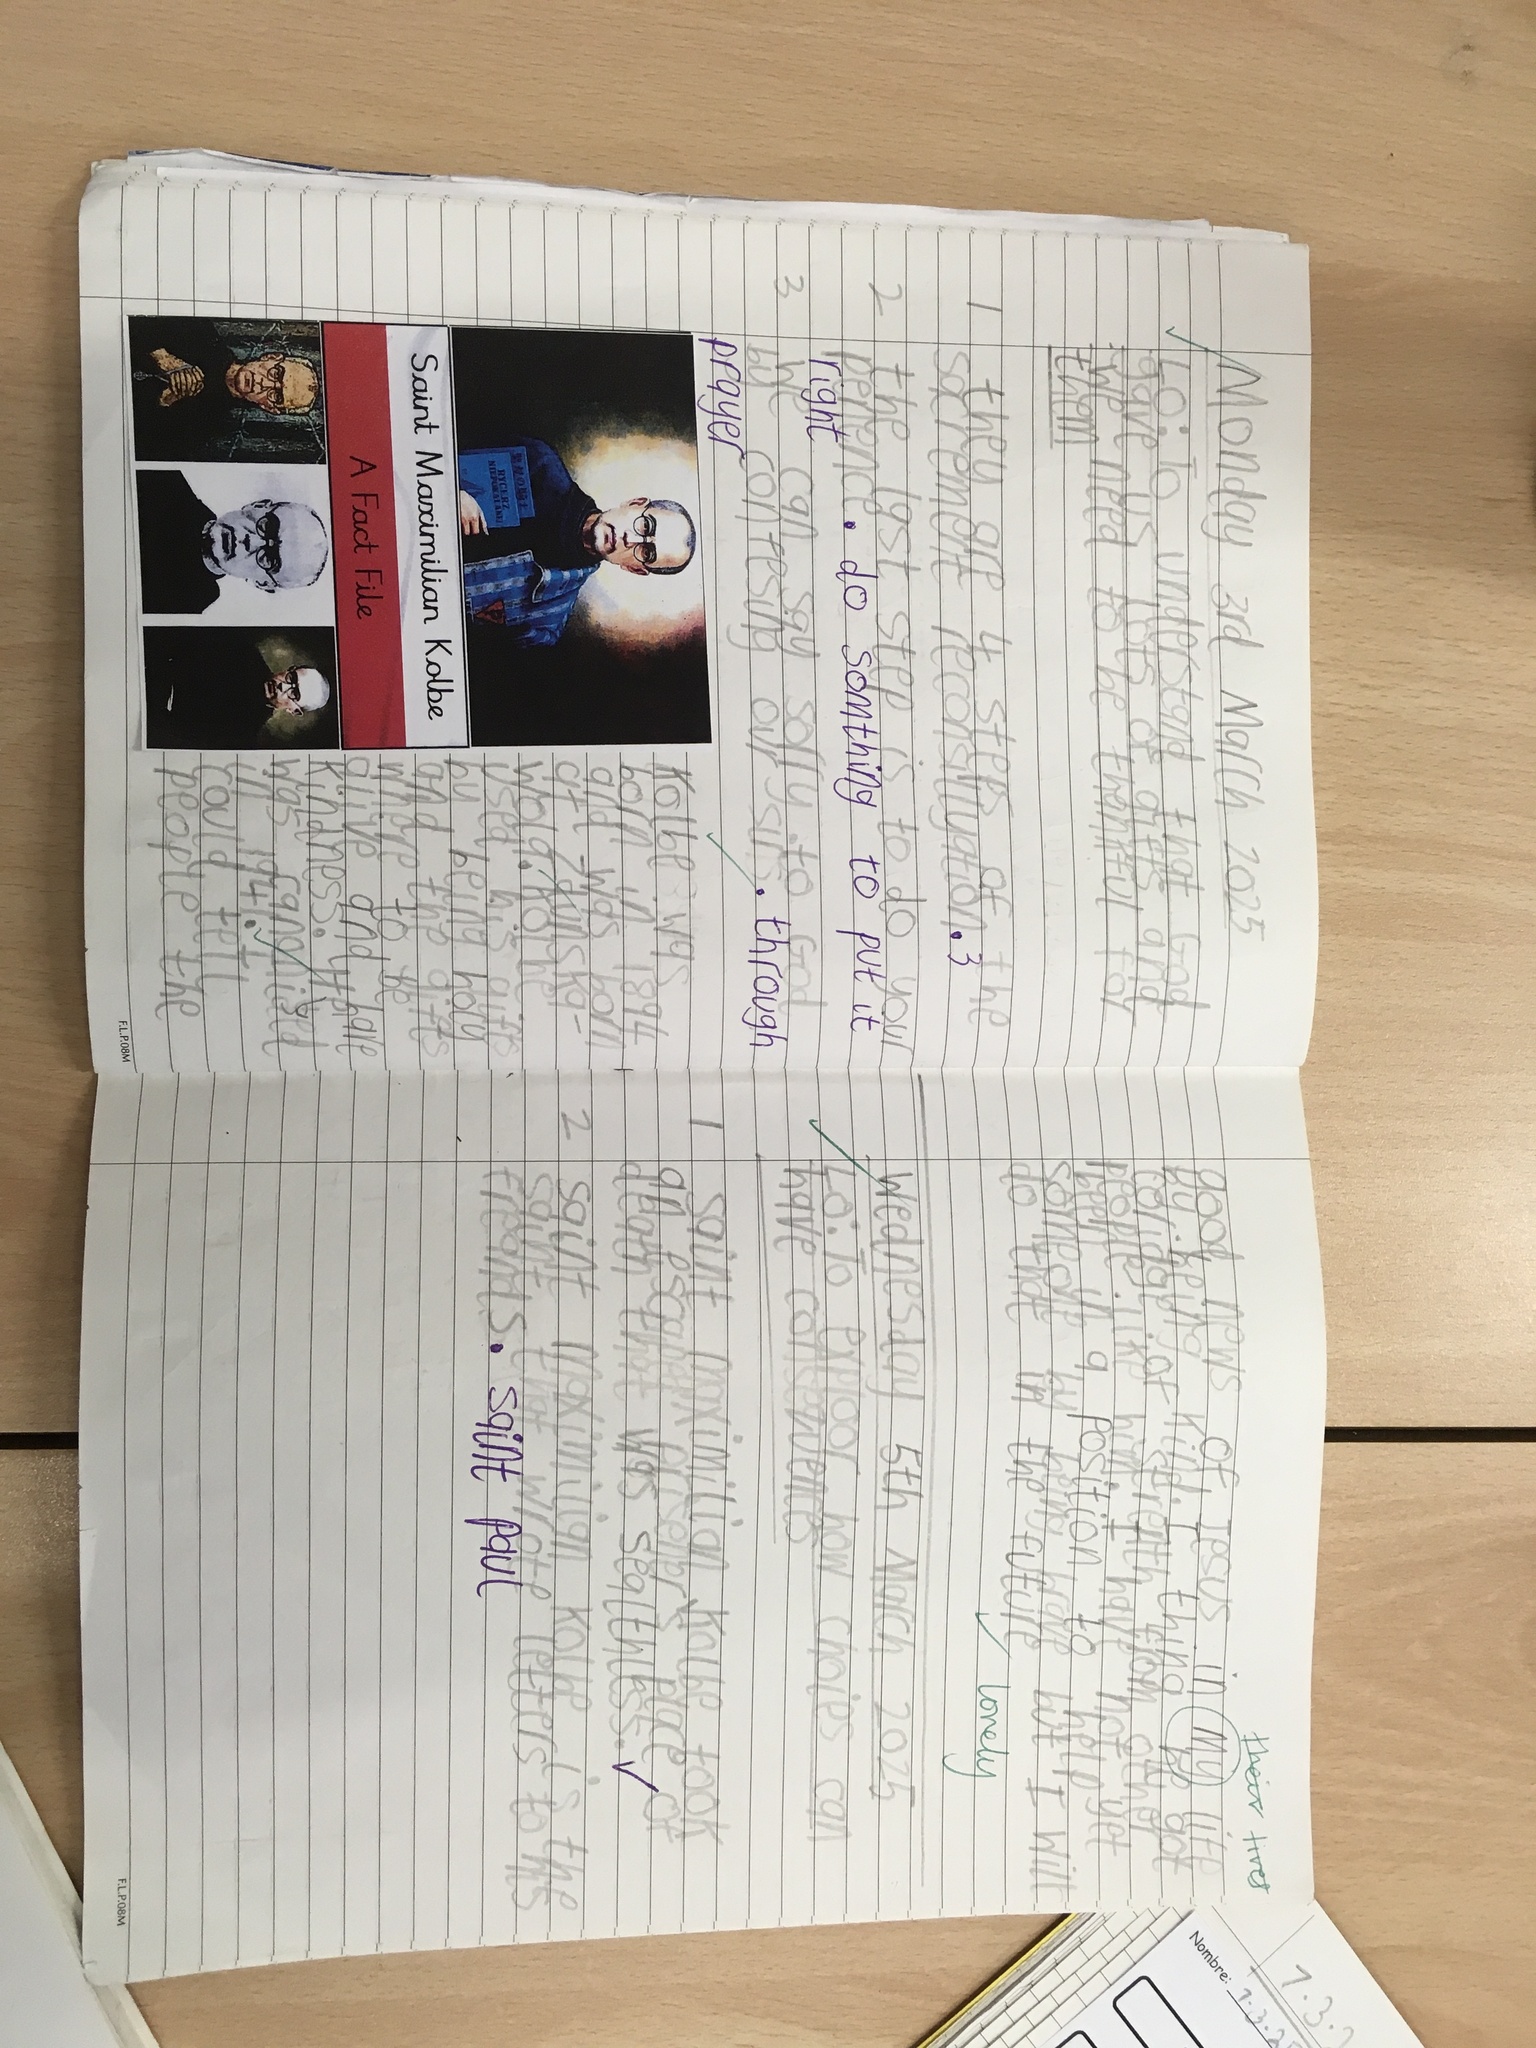 Monday 3rd March 2025
Lo: To understand that God
gave us lots of gifts and
we need to be thankful for
them
1 they are 4 steps of the
sacrement reconsiliyation.3
2 the last step is to do your
penence. do somthing to put it
right
3 we can say sorry to God
by confesing our sins. through
prayer
Saint Maximilian Kolbe
A Fact File
RYCERZ
NIEPOKALANEJ
Kolbe was
born in 1894
and was born
at
Kolbe
used his gifts
by being holy
and the gifts
whave to be
alive and have
kindness. he
was canonised
in 194.
could tell
people the
F.L.P.08M
good news of Jesus in my life
their lives
by being kind. I thing we got
coridge or strenth from other
people like him. I have not yet
been in a position to help
someone by being brave but I will
do that in the future
lonely
Wednesday 5th March 2025
Lo: To Exploor how choies can
have consequences
1 saint maximilian Kolbe took
an escaped prisoners place of
death that was seathles.
2 saint maximilian Kolbe is the
saint that wrote letters to his
freands. saint paul
F.L.P.08M
Nombre: 7.3.25
7.3.2